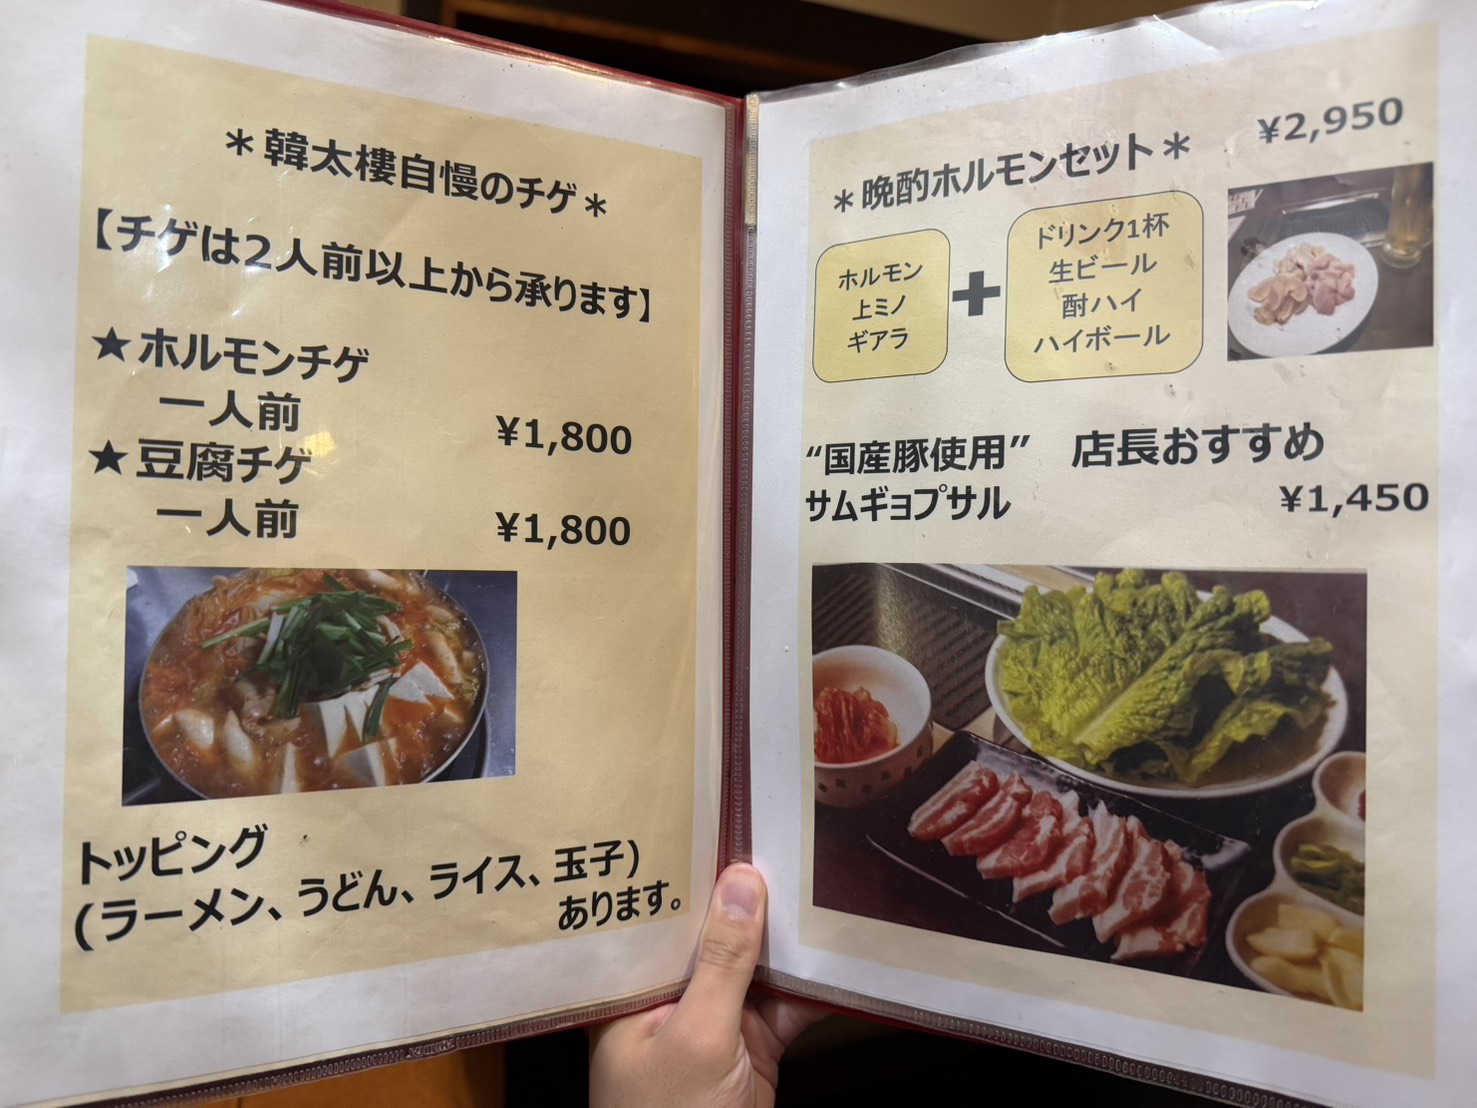 ＊韓太樓自慢のチゲ＊
【チゲは2人前以上から承ります】
★ホルモンチゲ
一人前 ¥1,800
★豆腐チゲ
一人前 ¥1,800
トッピング
(ラーメン、うどん、ライス、玉子)
あります。
＊晩酌ホルモンセット＊ ¥2,950
ホルモン
上ミノ
ギアラ
+
ドリンク1杯
生ビール
酎ハイ
ハイボール
“国産豚使用” 店長おすすめ
サムギョプサル ¥1,450